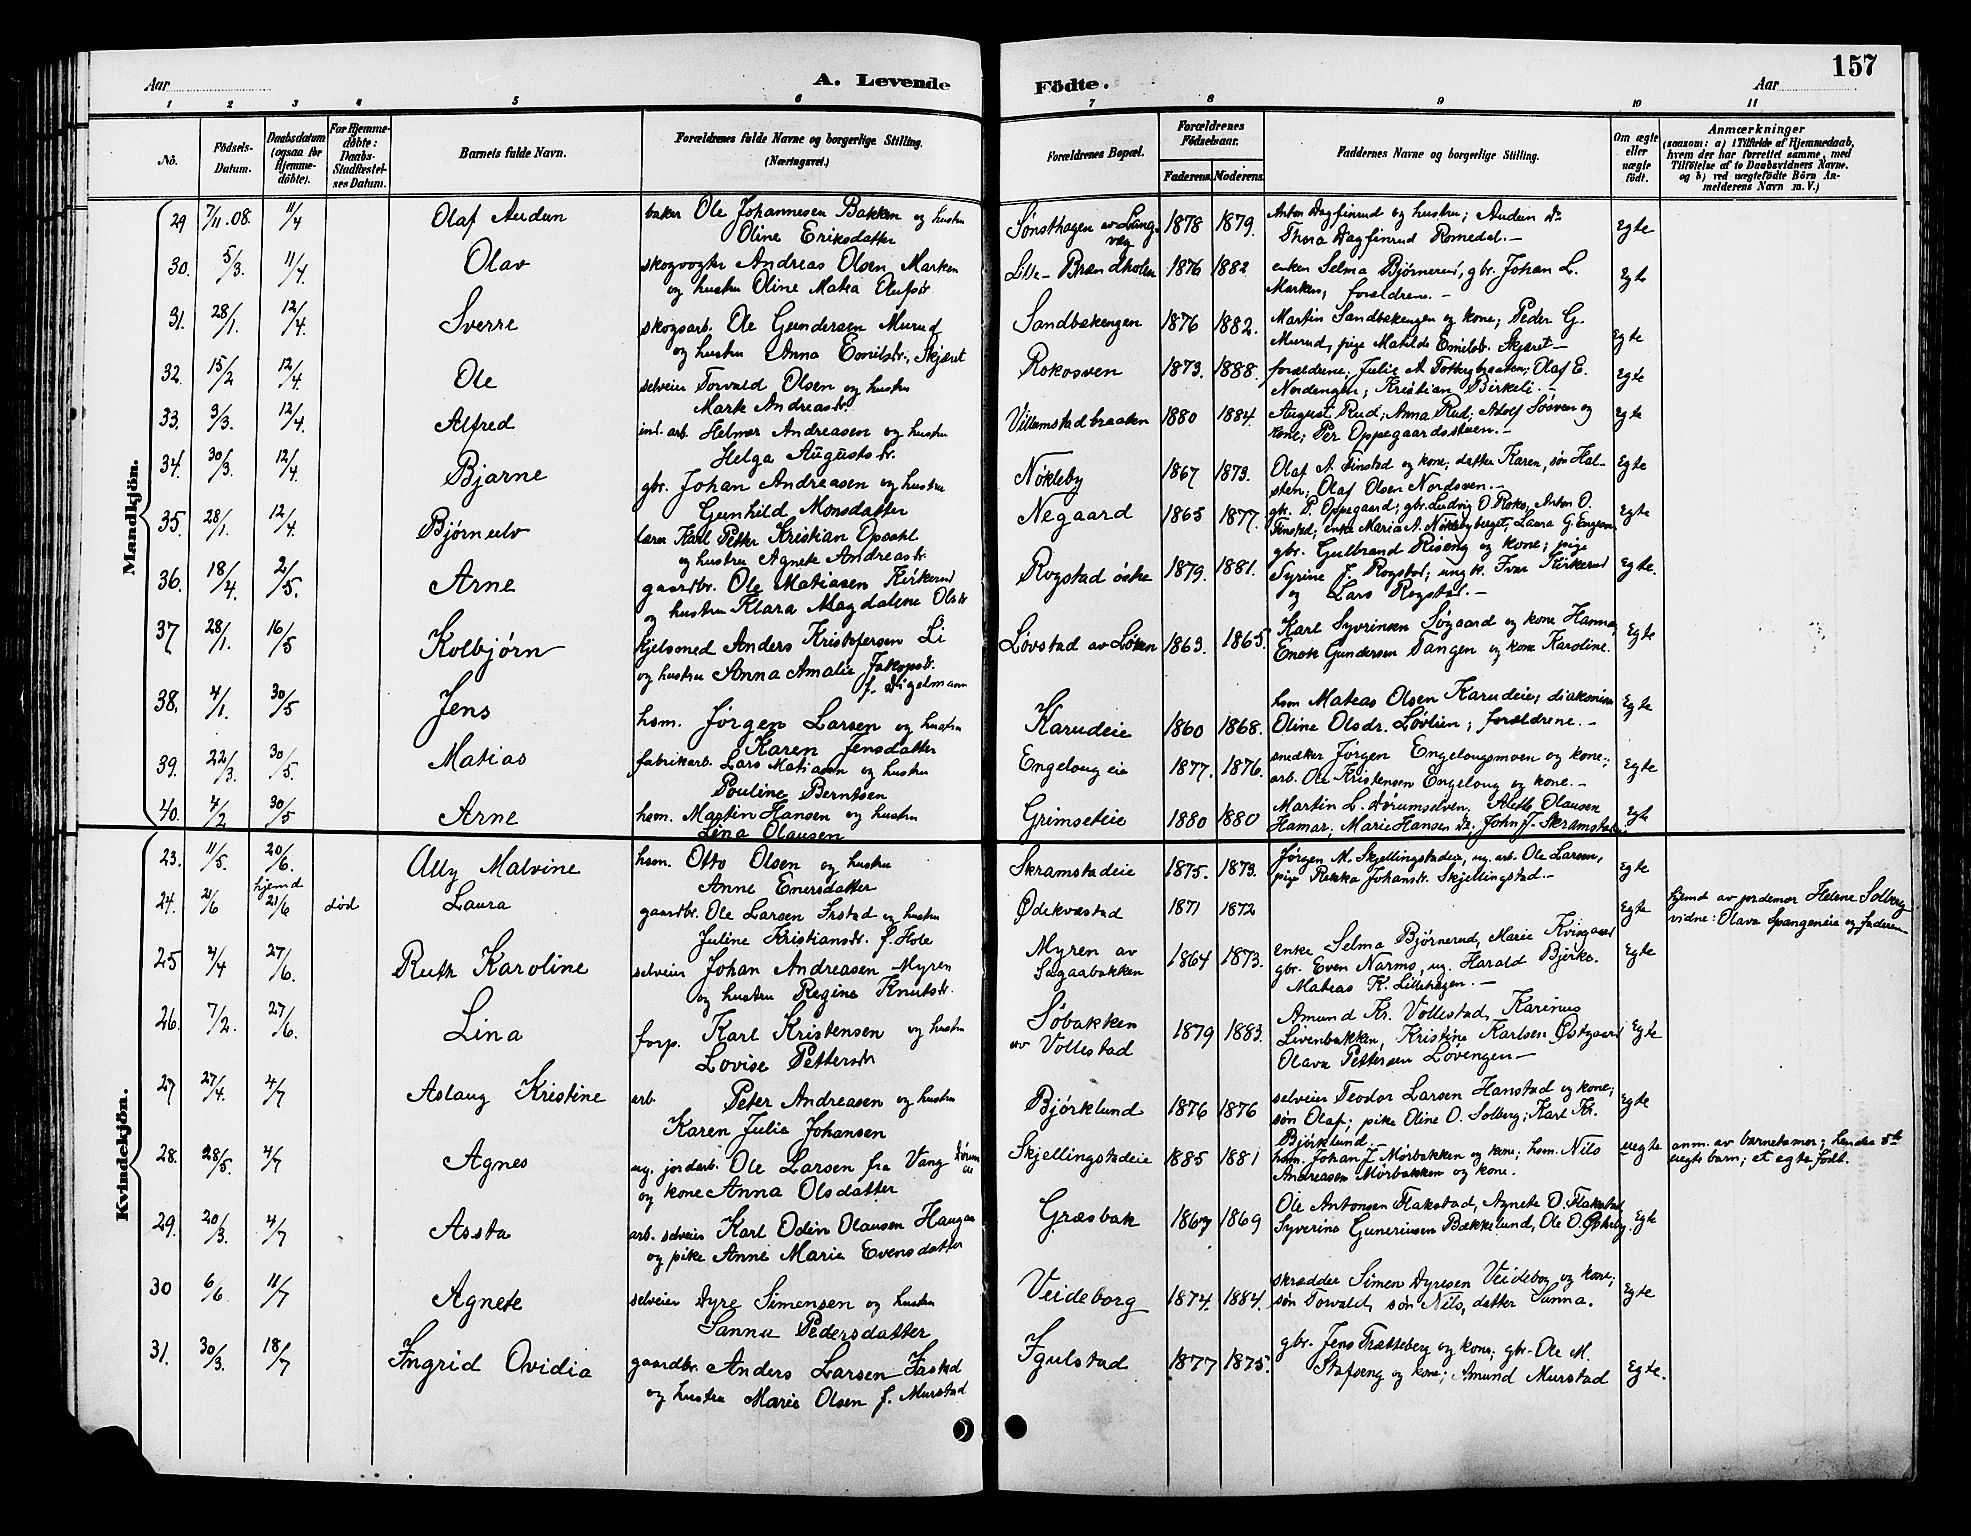 157
Aar
A. Levende
Födte.
Aar
1 2 3 4 5 6 7 8 9 10 11
No.
Födsels-Datum.
Daabsdatum (ogsaa for Hjemme-döbte).
For Hjemme-döbte: Daabs-Stadfæstel-ses Datum.
Barnets fulde Navn.
Forældrenes fulde Navne og borgerlige Stilling. (Næringsvei.)
Forældrenes Bopæl.
Forældrenes Födselsaar.
Faderens. Moderens.
Faddernes Navne og borgerlige Stilling.
Om ægte eller uægte födt.
Anmærkninger
(saasom: a) i Tilfælde af Hjemmedaab, hvem der har forrettet samme, med Tilföielse af to Daabsvidners Navne. og b) ved uægtefödte Börn Anmelderens Navn m. V.)
Mandkjön.
29 7/11.08. 11/4 Olaf Audun baker Ole Johannesen Bakken og hustru Sønsthagen av Lang- 1878 1879. Anton Dagfinrud og hustru; Audun Do Egte
Oline Eriksdatter væg Thora Dagfinrud Romedal.—
30. 5/3. 11/4. Olav skogvogter Andreas Olsen Marken Lille-Brændholen 1876 1882 enken Selma Bjørnerud, gbr. Johan L. Egte
og hustru Oline Matea Olufsdr. Marken, forældrene.—
31. 28/1. 12/4. Sverre skogsarb. Ole Gundersen Murud Sandbakengen 1876 1882. Martin Sandbakengen og kone; Peder G. Egte
og hustru Anna Emilsdr. Skjæret Murud, pige Matilde Emilsdr. Skjæret—
32. 15/2 12/4. Ole selveier Torvald Olsen og hustru Rokosven 1873. 1888. forældrene; Julie A. Olaf E. Egte
Marte Andreasdr. Nordengen; Kristian Birkeli.—
33. 3/3. 12/4. Alfred inl. arb. Helmer Andreasen og hustru Villumstadbraaten 1880 1884. August Rud; Anna Rud; Adolf Søsven og Egte
Helga Augustsdr. kone; Per Oppegaardsstuen.—
34. 30/3. 12/4. Bjarne gbr. Johan Andreasen og hustru Nøkleby 1867 1873. Olaf A. Finstad og kone; datter Karen, søn Hal- Egte
Gunhild Monsdatter sten; Olaf Olsen Nordsven.—
35. 28/1. 12/4. Bjørnulv lærer Karl Petter Kristian Opsahl Negaard 1865 1877. gbr. P. Oppegaard; gbr. Ludvig O. Roko, Anton O. Egte
og hustru Agnete Andreasdr. Finstad; enke Maria A. Nøklebyberget; Laura G. Engum
36. 18/4. 2/5. Arne gaardbr. Ole Matiasen Kirkerud Rogstad øske 1879. 1881. gbr. Gulbrand Riseng og kone; pige Egte.
og hustru Klara Magdalene Olsdr Syrine J. Rogstad; ungk. Ivar Kirkerud
og Lars Rogstad.—
37 28/1. 16/5 Kolbjørn hjulsmed Anders Kristofersen Li Løvstad av Løken 1863. 1865. Karl Syvrinsen Søgaard og kone Hanna, Egte
og hustru Anna Amalie Jakopsdr. Enok Gundersen Tangen og kone Karoline.
f. Digelmann
38. 4/1. 30/5 Jens hsm. Jørgen Larsen og hustru Karudeie 1860 1868. hsm Mateas Olsen Karudeie; diakonisse Egte
Karen Jensdatter Oline Olsdr. Løvlien; forældrene.—
39. 22/3. 30/5. Matias fabrikarb. Lars Matiasen og hustru Engelougeie 1877. 1876. snedker Jørgen Engelougsmoen og kone; Egte
Pouline Berntsen arb. Ole Kristensen Engeloug og kone.—
40. 4/2 30/5 Arne hsm. Martin Hansen og hustru Grimseteie 1880 1880 Martin L. Dørumselven. Alette Olausen Egte
Lina Olausen Hamar; Marie Hansen do. John J. Skramstad.
Kvindekjön.
23. 11/5. 20/6. Ally Malvine hsm. Otto Olsen og hustru Skramstadeie 1875. 1873. Jørgen M. Skjellingstadeie, ug. arb. Ole Larsen, Egte
Anne Enersdatter pige Rekka Johansdr. Skjellingstad.—
24. 2/6 hjemd 21/6 død Laura gaardbr. Ole Larsen Irstad og hustru Ødekvæstad 1871 1872 Egte hjemd av jordemor Helene Solberg
Juline Kristiansdr. f. Hole vidne: Olava Spangeneie og faderen
25 4/4 27/6. Ruth Karoline selveier Johan Andreasen Myren Myren av 1864 1873. enke Selma Bjørnerud, Marie Kvisgaard Egte
og hustru Regine Knutsdr. Sagaarbakken gbr. Even Narmo, ug. Harald Bjerke.
Mateas K. Lillehagen.—
26. 7/2. 27/6. Lina forp. Karl Kristensen og hustru Søbakken 1879 1883. Amund Kr. Vollestad, Karinus Egte
Lovise Pettersdr av Vollestad Livenbakken, Kristine Karlsen Østgaard
Olava Pettersen Løvengen—
27 27/4. 4/7 Aslaug Kristine arb. Peter Andreasen og hustru Bjørklund 1876 1876 selveier Teodor Larsen Hanstad og kone; Egte
Karen Julie Johansen søn Olaf; pike Oline O. Solberg; Karl Kr.
Bjørklund.
28. 28/5. 4/7 Agnes ug. jordarb. Ole Larsen fra Vang Skjellingstadeie 1885 1881 hsm. Johan J. Mørbakken og kone; hsm. Nils uegte anm. av barnetamor; hendes 5te
og kone Anna Olsdatter Andreasen Mørbakken og kone. uegte barn; et egte født.
29. 20/3. 4/7 Assta arb. selveier Karl Odin Olausen Haugen Græsbak 1867 1869 Ole Antonsen Flakstad, Agnete O. Flakstad Egte
og pike Anne Marie Evensdatter Syverine Guneriusen Bækkelund, Ole O.
30 6/6. 11/7 Agnete selveier Dyre Simensen og hustru Veideborg 1874. 1884. skrædder Simen Dyresen Veideborg og kone; Egte
Sanna Pedersdatter søn Torvald, søn Nils, datter Sanna.
31. 30/3. 18/7 Ingrid Ovidia gaardbr. Anders Larsen Irstad Igulstad 1877 1875. gbr. Jens Trætteberg og kone; gbr. Ole M. Egte.
og hustru Marie Olsen f. Murstad Stafseng og kone; Amund Murstad